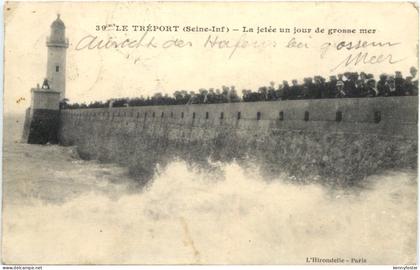 39. LE TRÉPORT (Seine-Inf) - La jetée un jour de grosse mer
Aussicht des Hafens bei grossem
Meer
L'Hirondelle - Paris
www.bennyfoster